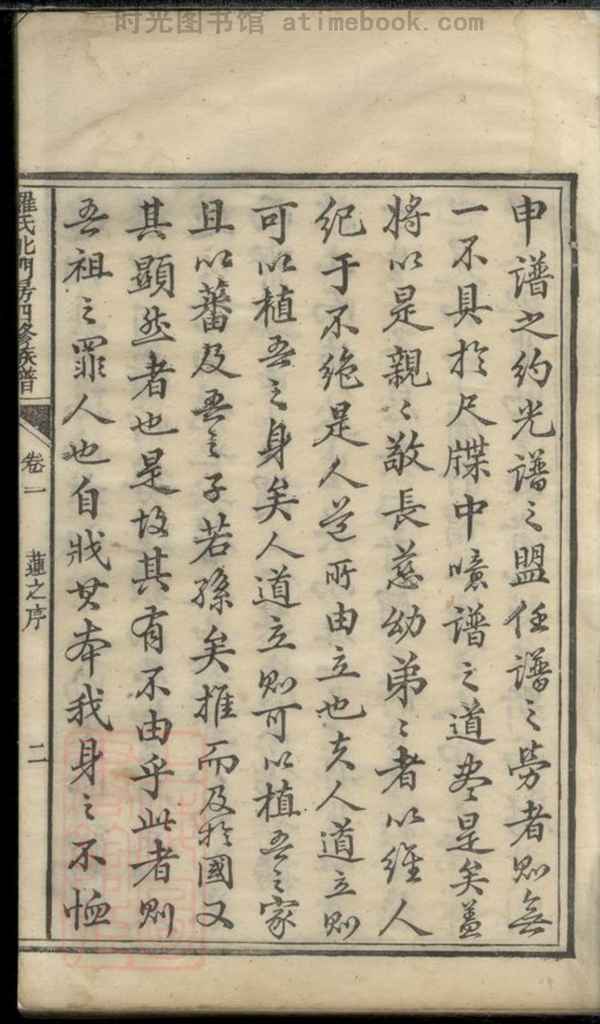 时光图书馆 atimebook.com
申譜之約光譜之盟任譜之勞者則無
一不具於尺牒中噫譜之道盡是矣蓋
將以是親〻敬長慈幼弟〻者以維人
紀于不絶是人道所由立也夫人道立則
可以植吾之身矣人道立則可以植吾之家
且以蕃及吾之子若孫矣推而及於國又
其顯然者也是故其有不由乎此者則
吾祖之罪人也自戕其本我身之不恤
羅氏北門房四修族譜 卷一 蓮之序 二